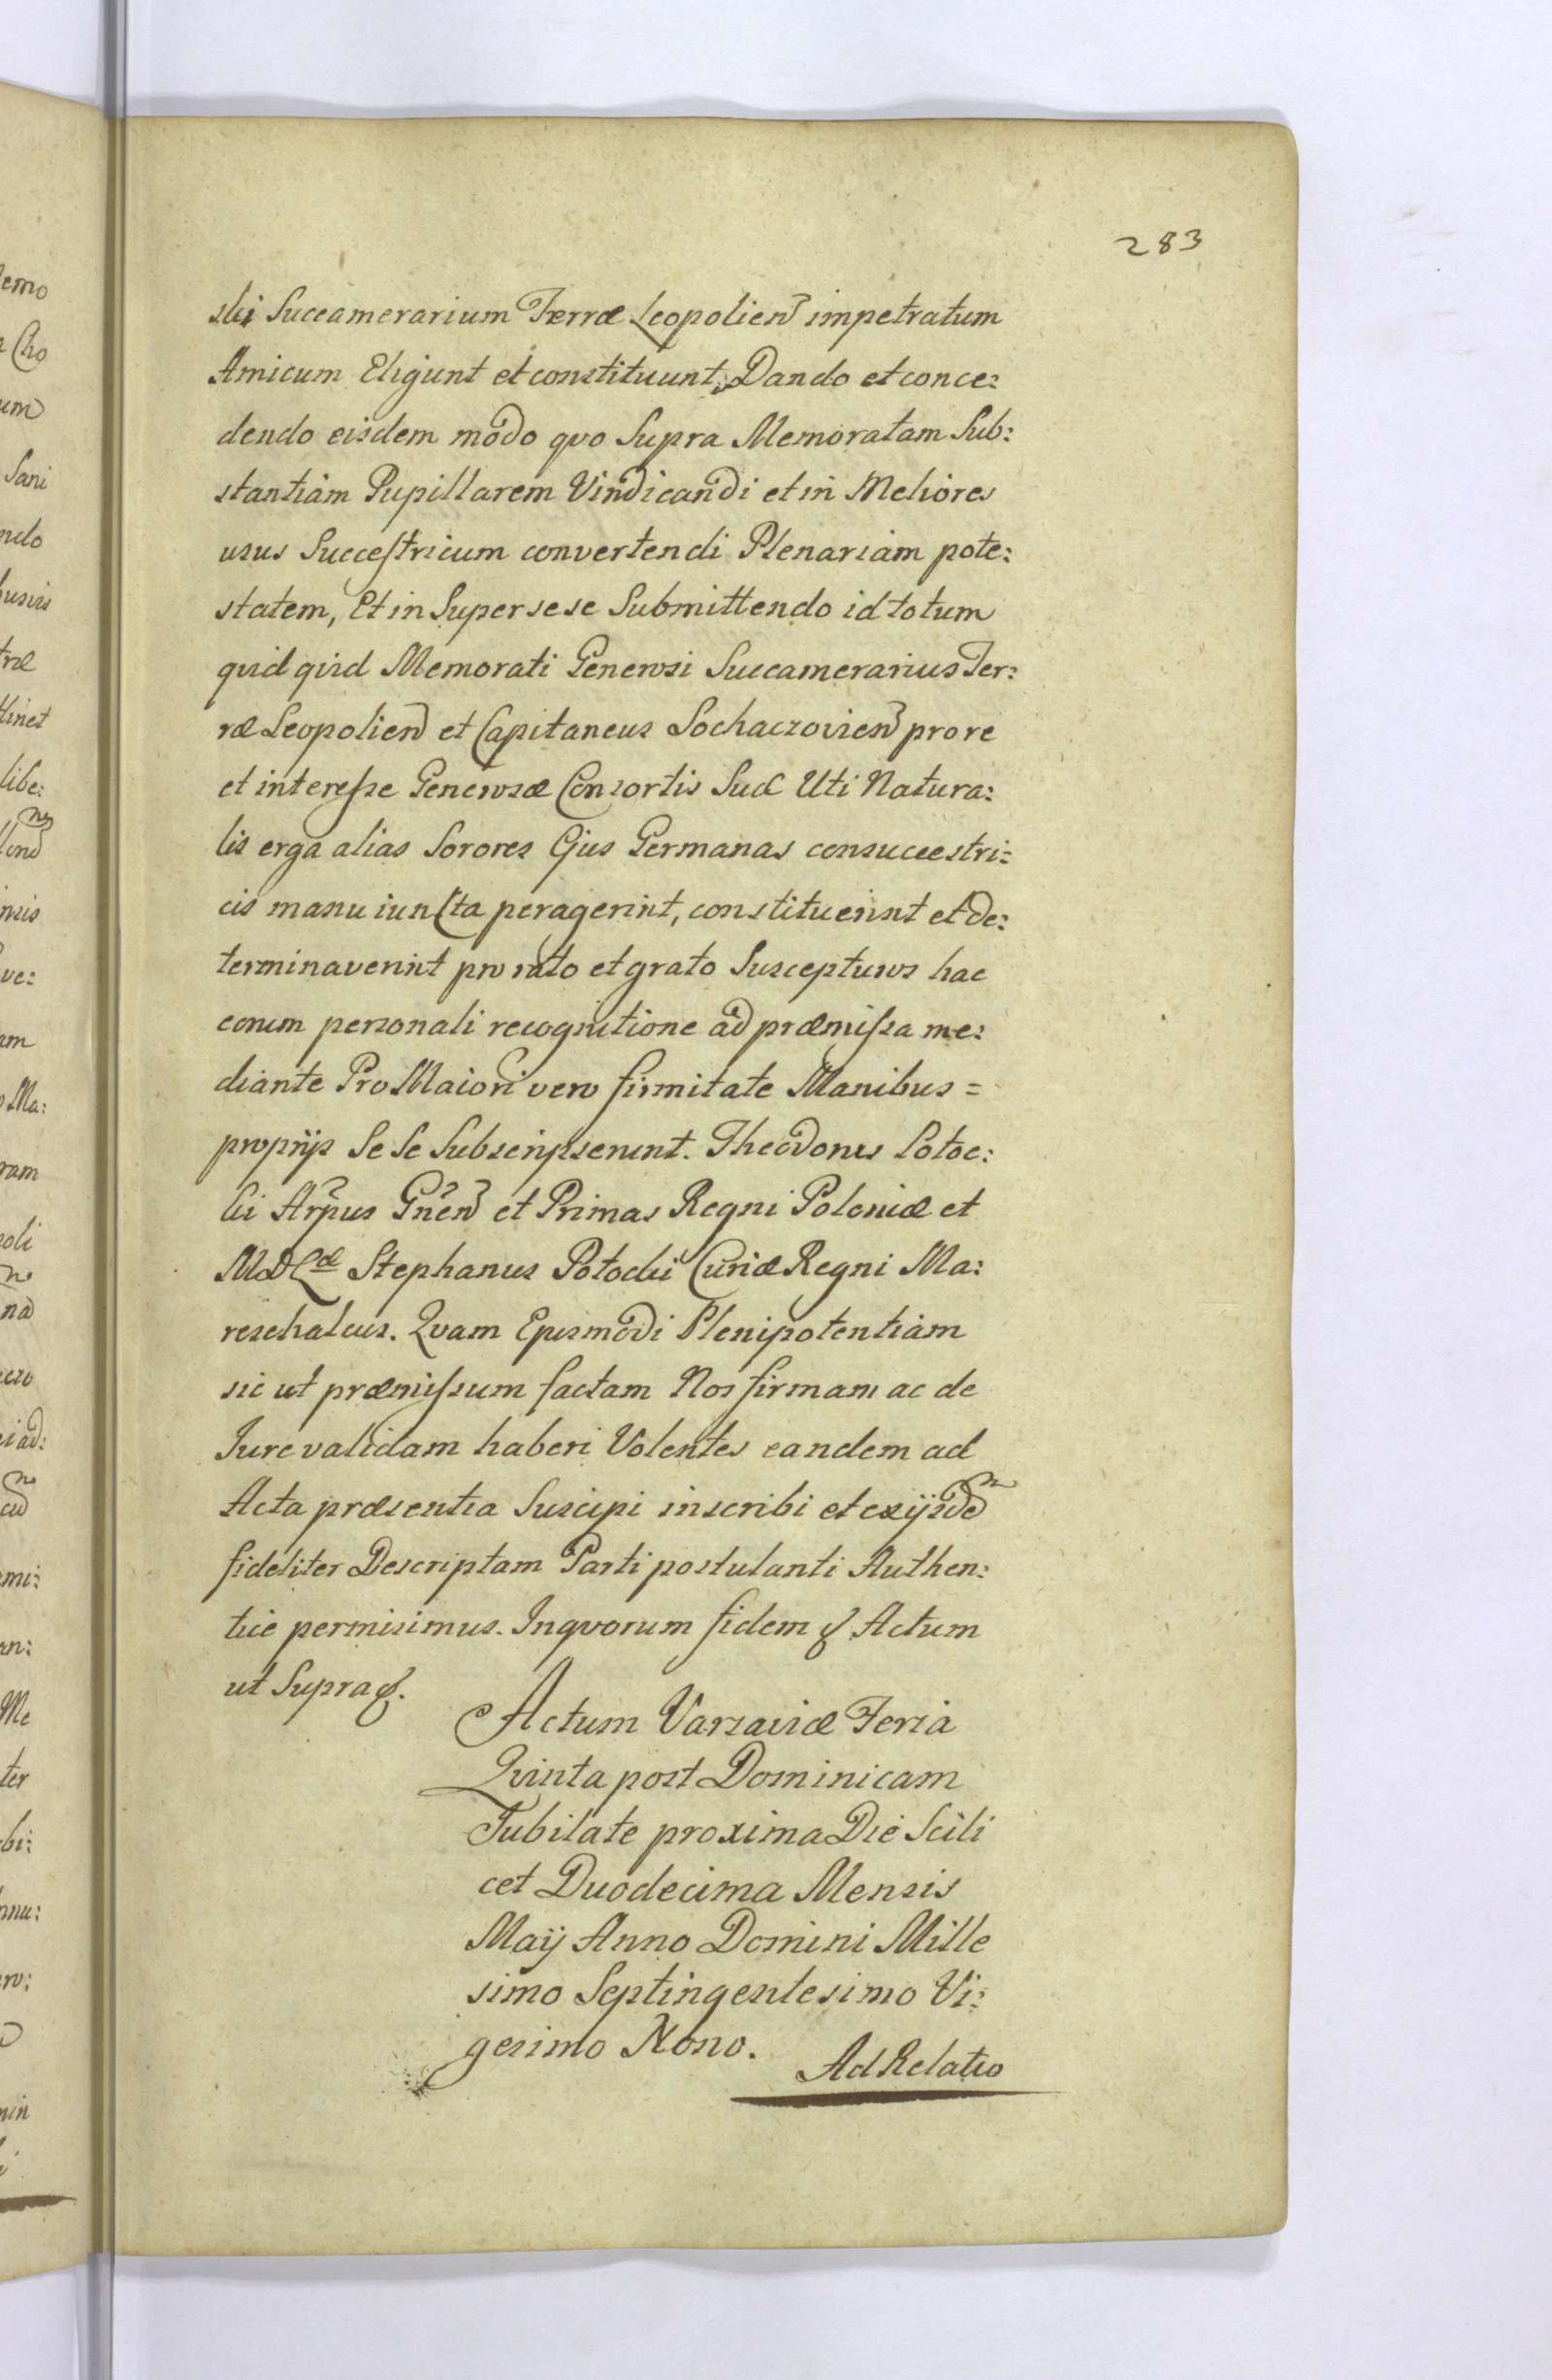 283
ski Succamerarium Terræ Leopolien̄ impetratum
Amicum Eligunt et constituunt, Dando et conce:
dendo eisdem modo qvo Supra Memoratam Sub:
stantiam Pupillarem Vindicandi et in Meliores
usus Succestricum convertendi Plenariam pote:
statem, Et in Super sese Submittendo id totum
quid quid Memorati Generosi Succamerarius Ter:
ræ Leopolien̄ et Capitaneus Sochaczovien̄ pro re
et interesse Generosæ Consortis Suæ Uti Natura:
lis erga alias Sorores Ejus Germanas consuccestri:
cis manu iuncta peragerint, constituerint et de:
terminaverint pro rato et grato Suscepturos hac
eorum personali recognitione ad præmissa me:
diante Pro Maiori vero firmitate Manibus =
proprijs Se Se Subscripserunt. Theodorus Potoc:
ki Arp̄us Gnēn̄ et Primas Regni Poloniæ et
MDLæ Stephanus Potocki Curiæ Regni Ma:
reschalcus. Qvam Ejusmodi Plenipotentiam
sic ut præmissum factam Nos firmam ac de
Iure validam haberi Volentes eandem ad
Acta præsentia Suscipi inscribi et ex ijsdem̄
fideliter Descriptam Parti postulanti Authen:
tice permisimus. In qvorum fidem & Actum
ut Supra &.
Actum Varsaviæ Feria
Qvinta post Dominicam
Jubilate proxima Die Scili
cet Duodecima Mensis
Maÿ Anno Domini Mille
simo Septingentesimo Vi:
gesimo Nono.
Ad Relatio